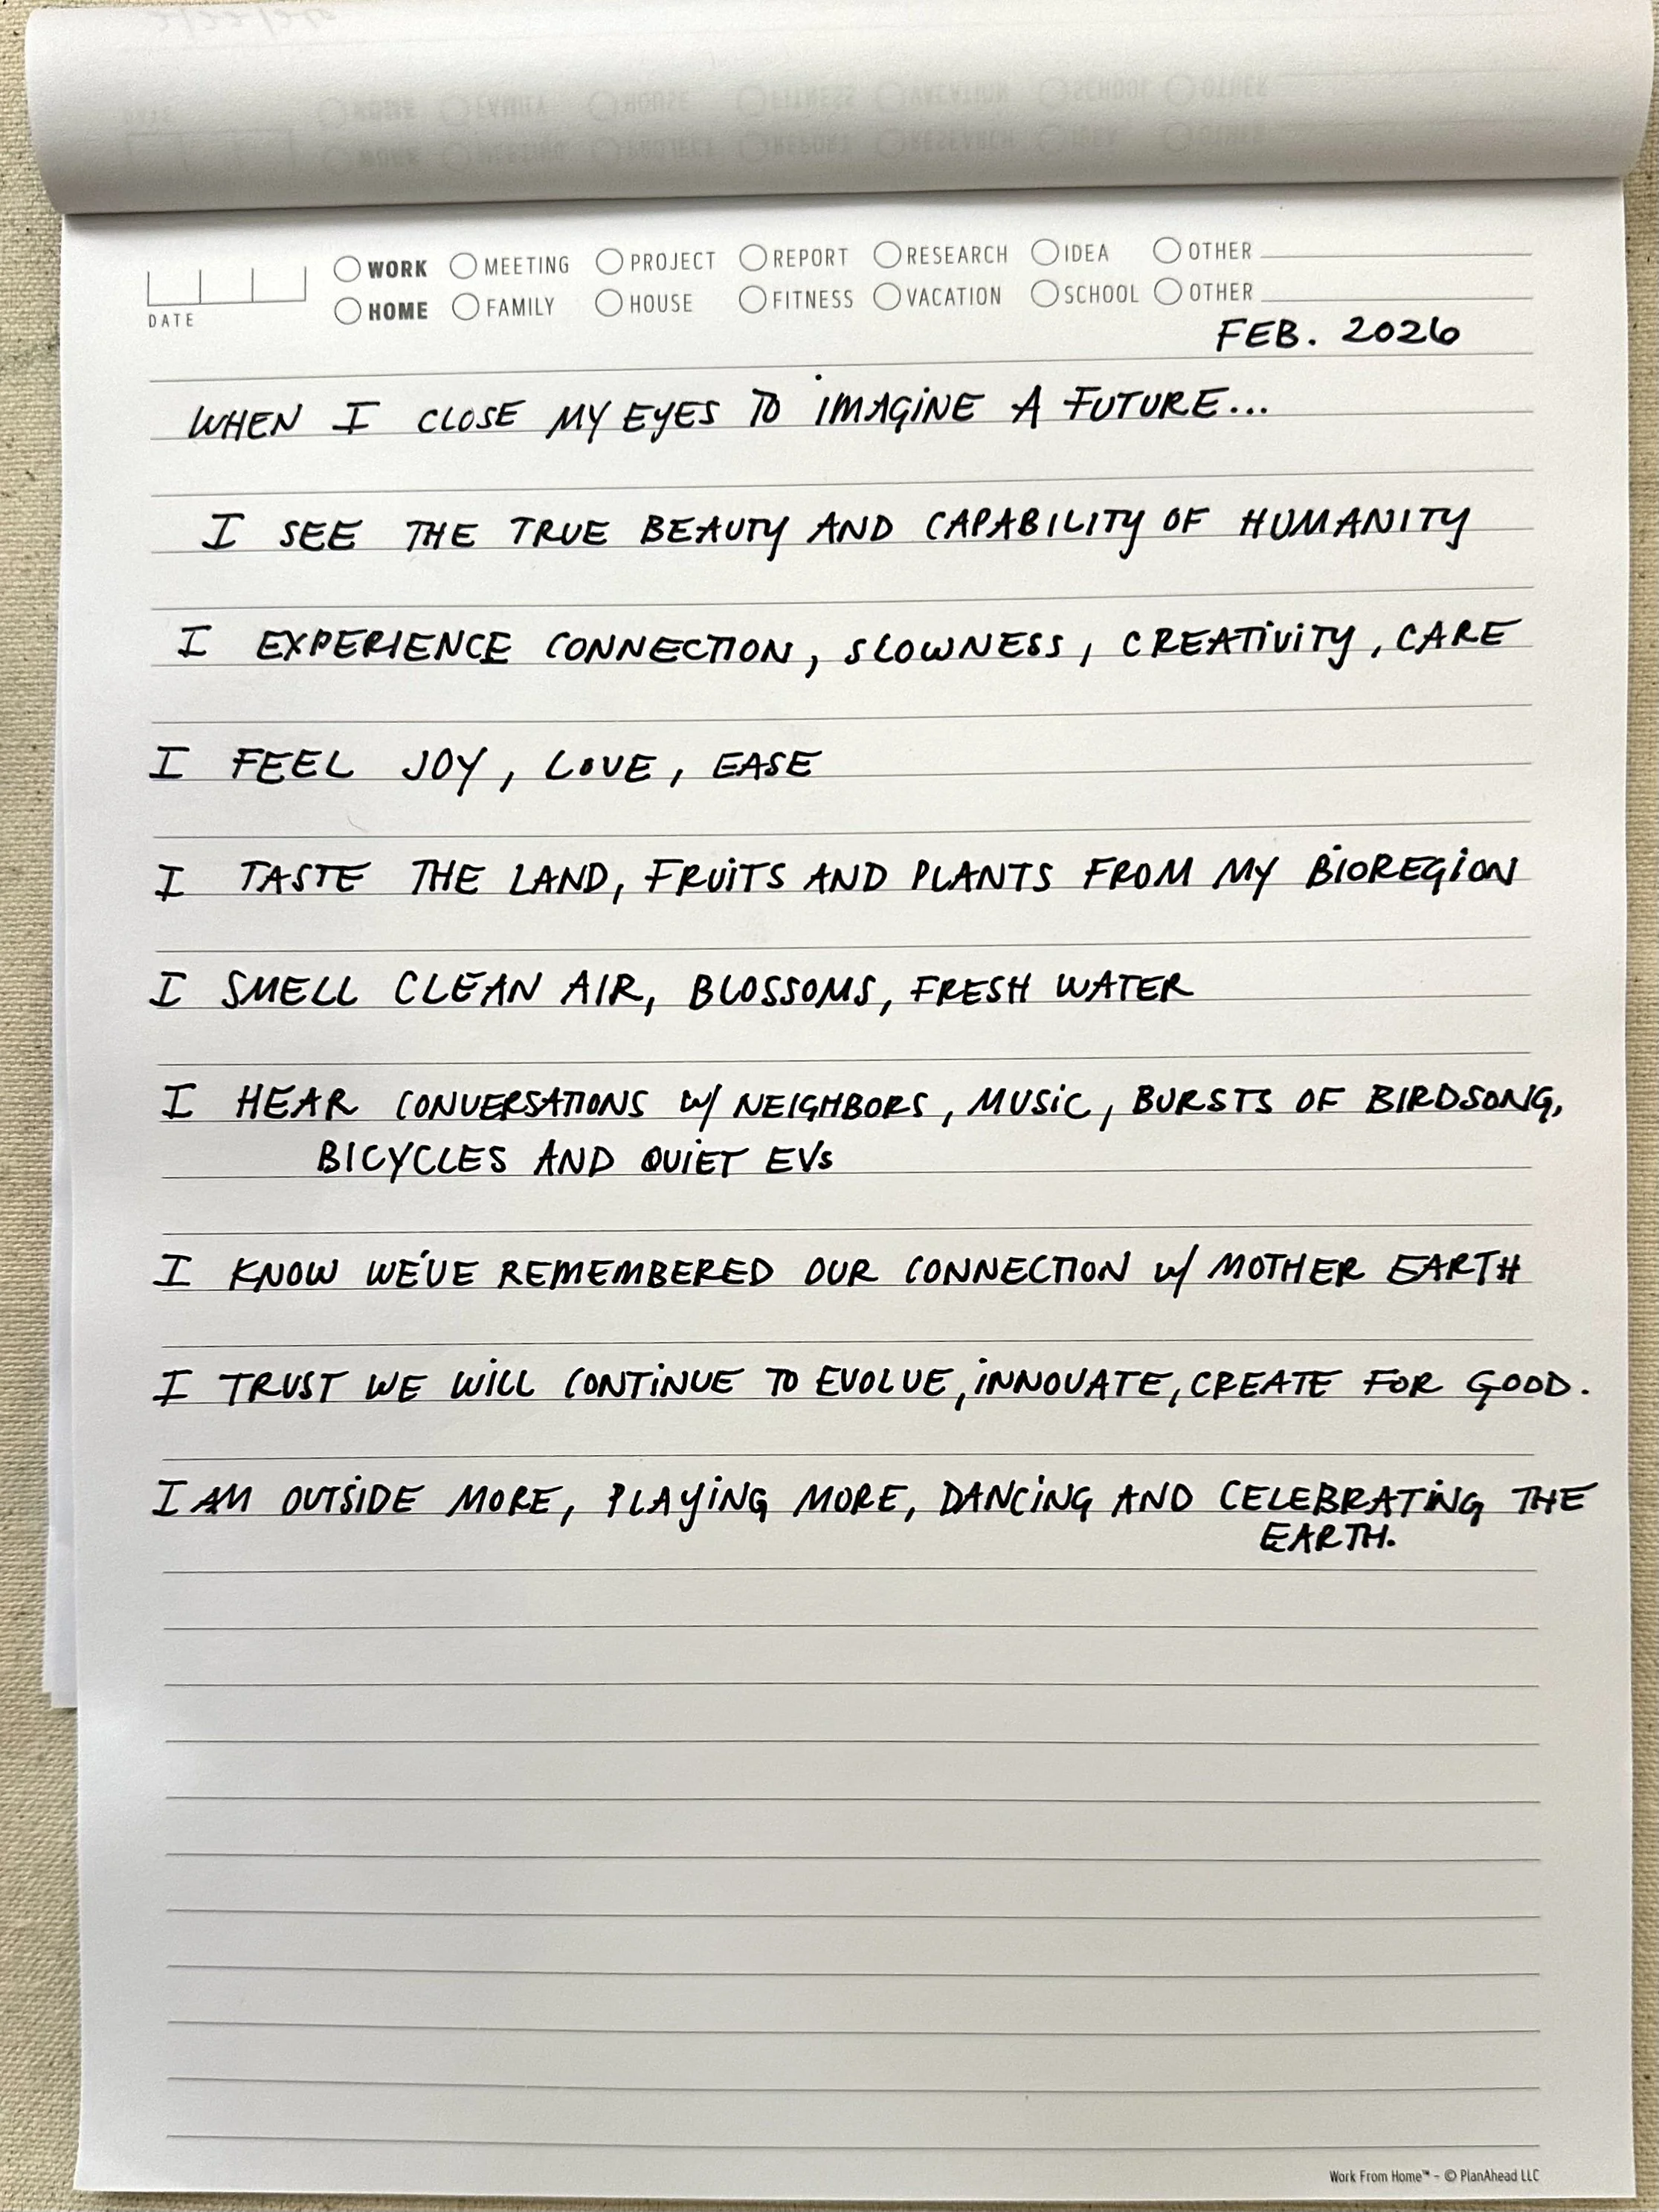 WORK MEETING PROJECT REPORT RESEARCH IDEA OTHER
HOME FAMILY HOUSE FITNESS VACATION SCHOOL OTHER
DATE
FEB. 2026
WHEN I CLOSE MY EYES TO IMAGINE A FUTURE...
I SEE THE TRUE BEAUTY AND CAPABILITY OF HUMANITY
I EXPERIENCE CONNECTION, SLOWNESS, CREATIVITY, CARE
I FEEL JOY, LOVE, EASE
I TASTE THE LAND, FRUITS AND PLANTS FROM MY BIOREGION
I SMELL CLEAN AIR, BLOSSOMS, FRESH WATER
I HEAR CONVERSATIONS W/ NEIGHBORS, MUSIC, BURSTS OF BIRDSONG,
BICYCLES AND QUIET EVs
I KNOW WE'VE REMEMBERED OUR CONNECTION W/ MOTHER EARTH
I TRUST WE WILL CONTINUE TO EVOLVE, INNOVATE, CREATE FOR GOOD.
I AM OUTSIDE MORE, PLAYING MORE, DANCING AND CELEBRATING THE
EARTH.
Work From Home™ - © PlanAhead LLC